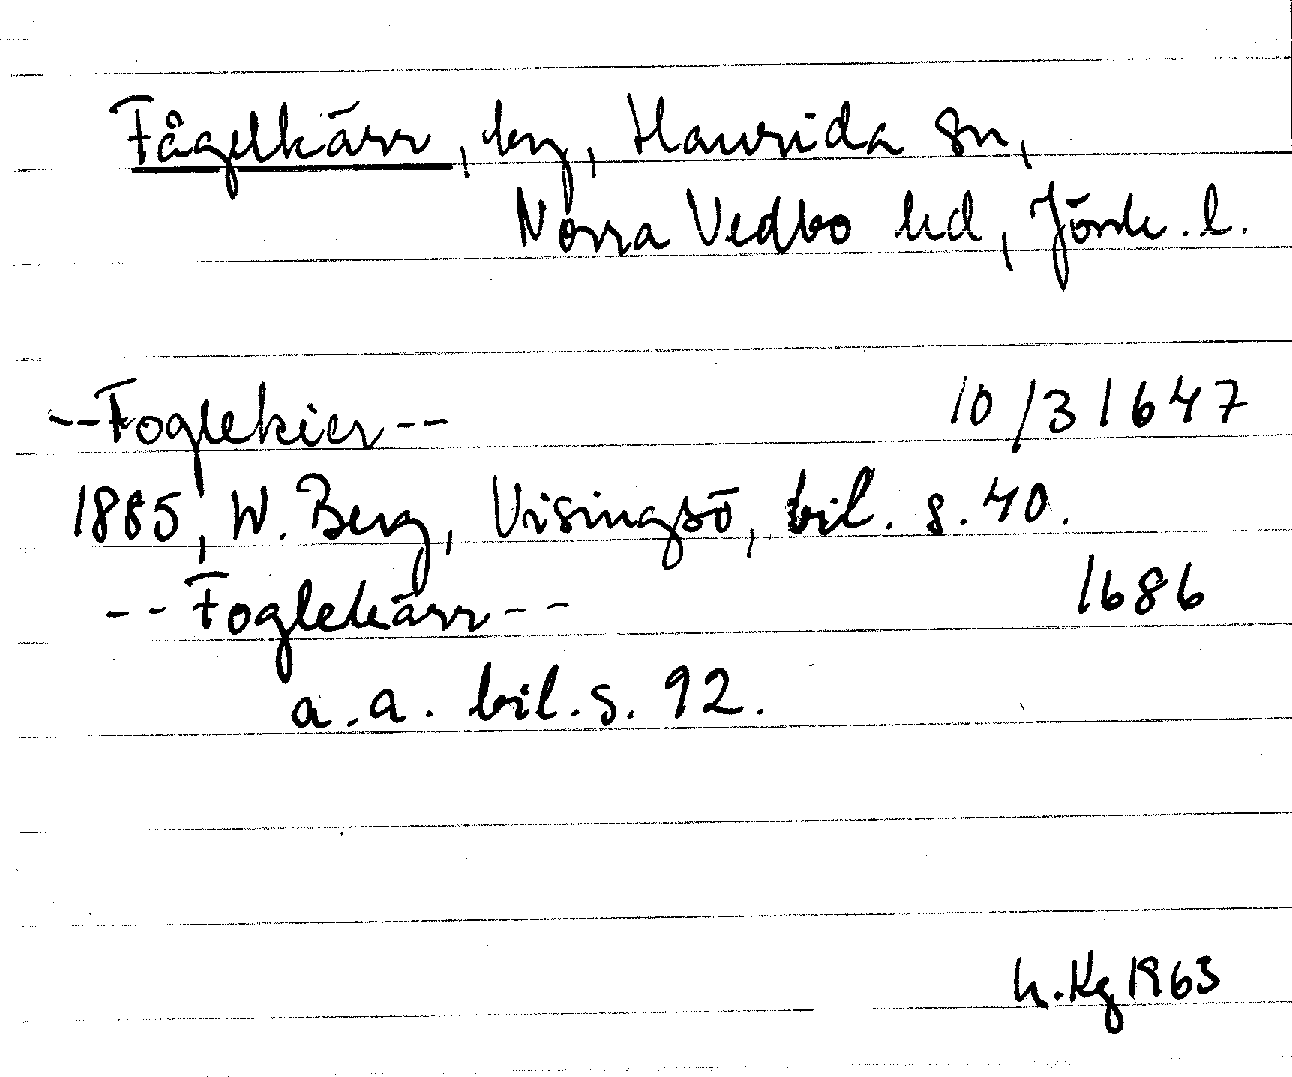 Fågelkärr, by, Haurida sn,
Norra Vedbo hd, Jönk. l.
--Foglekier-- 10/3 1647
1885, W. Berg, Visingsö, bil. s. 40.
--Foglekärr-- 1686
a.a. bil. s. 92.
h. Kg 1963